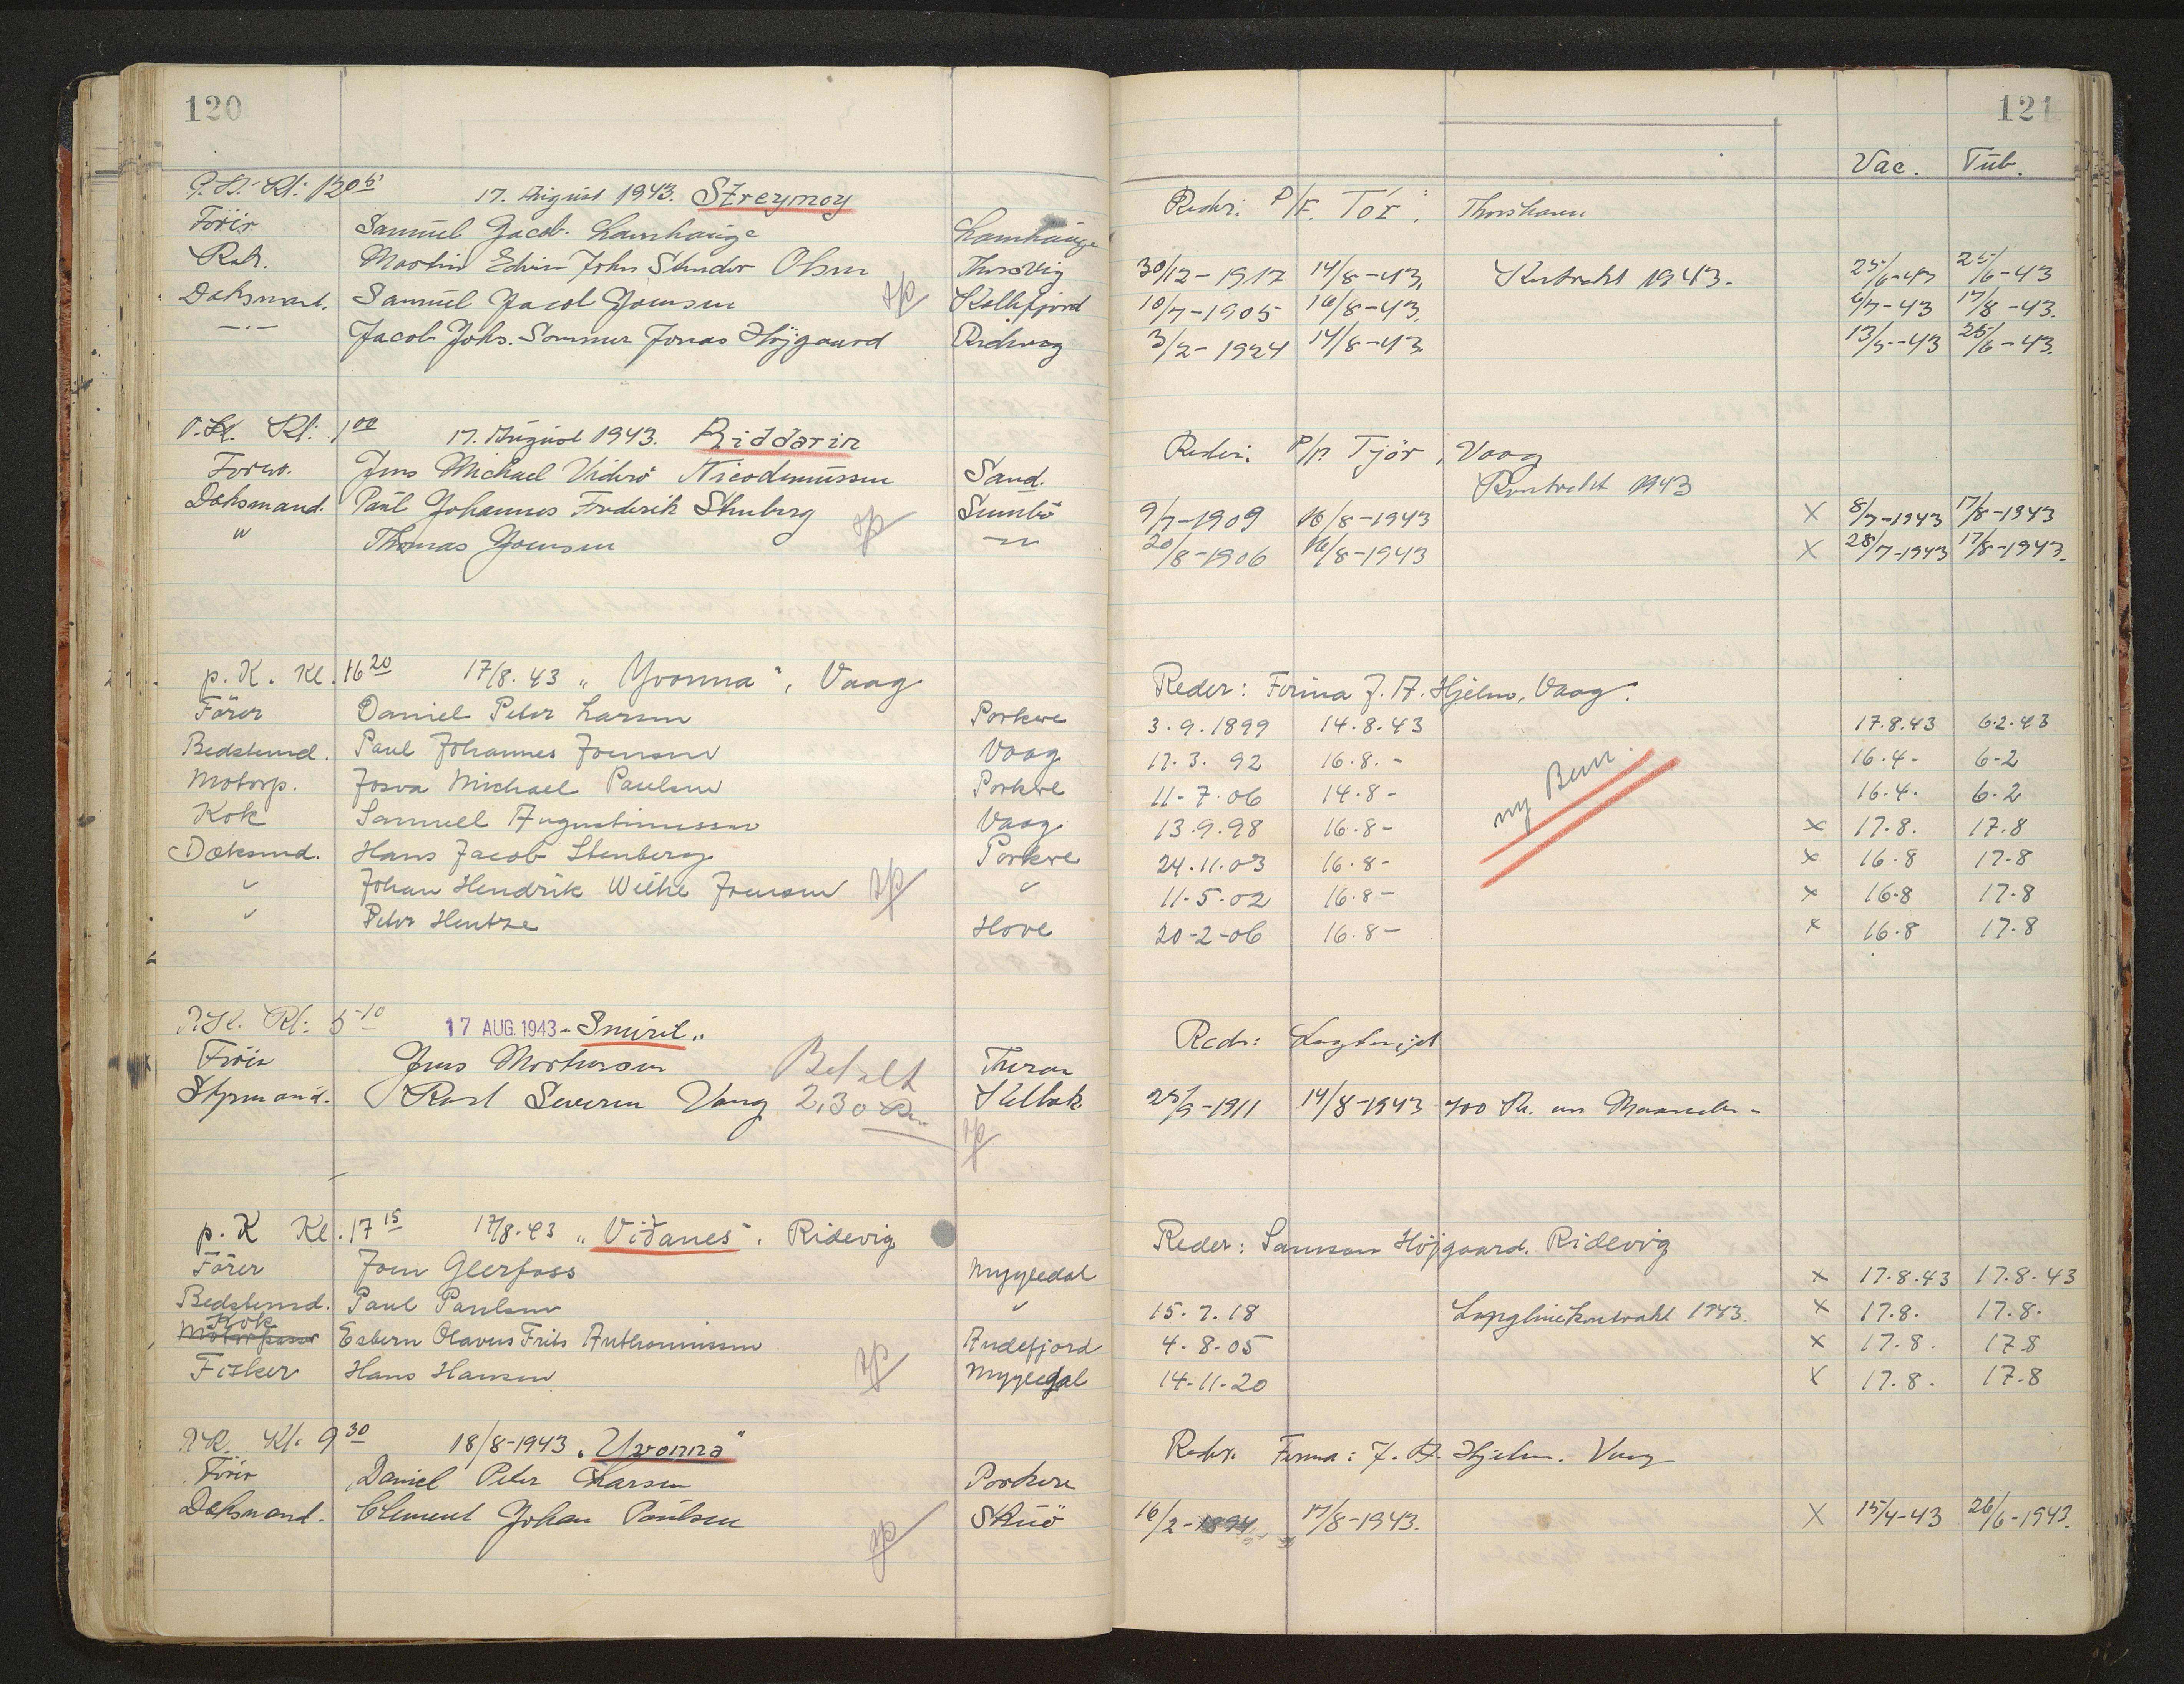 120
P.K. Kl: 120 5 17. August 1943. Streymoy
Förir Samuel Jacob Lamhauge Lamhauge
Martin Edvin John Olsen
Daksmand. Samuel Jacob Joensen Kollefjord
-"- Jacob Johs. Sommer Jonas Højgaard Ridevig
P.K. Kl: 1 00 17. August 1943. Riddarin
Förer. Jens Michael Viderö Nicodemussen Sand.
Daksmand. Paul Johannes Frederik Stenberg Sumbö
" Thomas Joensen -"-
p. K. Kl. 16 20 17/8. 43 "Yvonna", Vaag
Förer Daniel Peter Larsen Porkere
Bedstemd. Paul Johannes Joensen Vaag
Motorp. Josva Michael Paulsen Porkere
Kok Samuel Augustinussen Vaag
Dæksmd. Hans Jacob Stenberg Porkere
" Johan Hendrik Wilhe Joensen "
" Peter Hentze Hove
P.K. Kl: 5 10 17 AUG. 1943 "Smiril"
Förir Jens Mortensen Betalt
Styrmand. Karl Severin Vang 2,30 Kr.
p. K Kl. 17 15 17/8. 43 "Viðanes", Ridevig
Förer Joen Geerfoss Mygledal
Bedstemd. Paul Paulsen "
Kok
Motorpasser Esbern Olavus Frits Anthoniussen Andefjord
Fisker Hans Hansen Mygledal
P.K. Kl. 9 30 18/8-1943 "Yvonna"
Förir Daniel Peter Larsen Porkere
Daksmand. Clement Johan Poulsen Skuö
121
Vac. Tub.
Reder: P/F. Tór. Thorshavn
30/12-1917 14/8-43. Kontrakt 1943. 25/6-43 25/6-43
10/7-1905 16/8-43. 6/7-43 17/8-43.
3/2-1924 14/8-43 13/5-43 25/6-43.
Reder: P/R Tjör, Vaag
Kontrakt 1943
9/7-1909 16/8-1943 X 8/7-1943 17/8-1943
20/8-1906 16/8-1943 X 28/7-1943 17/8-1943.
Reder: Firma J. A. Hjelm, Vaag.
3.9.1899 14.8.43 17.8.43 6.2.43
17.3. 92 16.8.- 16.4- 6-2
11-7.06 14.8- ny Bem. 16.4. 6.2
13.9.98 16.8- x 17.8. 17.8
24.11.03 16.8- x 16.8 17.8
11.5.02 16.8- x 16.8 17.8
20-2-06 16.8- x 16.8 17.8
Reder: Lagtinget
25/9-1911 14/8-1943 400 Kr. om Maaneden
Reder: Samson Højgaard, Ridevig
x 17.8.43 17.8.43
15.7.18 Langlinekontrakt 1943. x 17.8. 17.8.
4.8.05 x 17.8. 17.8
14-11-20 x 17.8. 17.8
Reder. Firma: J. A. Hjelm. Vaag
16/2-1894 17/8-1943. X 15/4-43 26/6-1943.